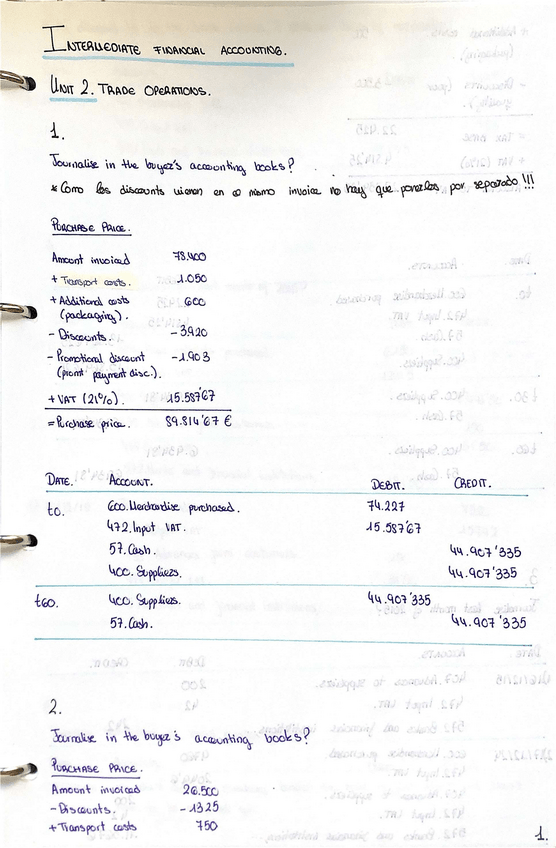 INTERMEDIATE FINANCIAL ACCOUNTING.
UNIT 2. TRADE OPERATIONS.
1.
Journalise in the buyer's accounting books?
* Como los discounts vienen en el mismo invoice no hay que ponerlos por separado !!!
PURCHASE PRICE.
Amount invoiced 78.400
+ Transport costs. 1.050
+ Additional costs 600
(packaging).
- Discounts. -3.920
- Promotional discount -1.903
(promt payment disc.).
+ VAT (21%). 15.587'67
= Purchase price. 89.814'67 €
DATE. ACCOUNT. DEBIT. CREDIT.
t0. 600. Merchandise purchased. 74.227
472. Input VAT. 15.587'67
57. Cash. 44.907'335
400. Suppliers. 44.907'335
t60. 400. Suppliers. 44.907'335
57. Cash. 44.907'335
2.
Journalise in the buyer's accounting books?
PURCHASE PRICE.
Amount invoiced 26.500
- Discounts. -1325
+ Transport costs 750
1.